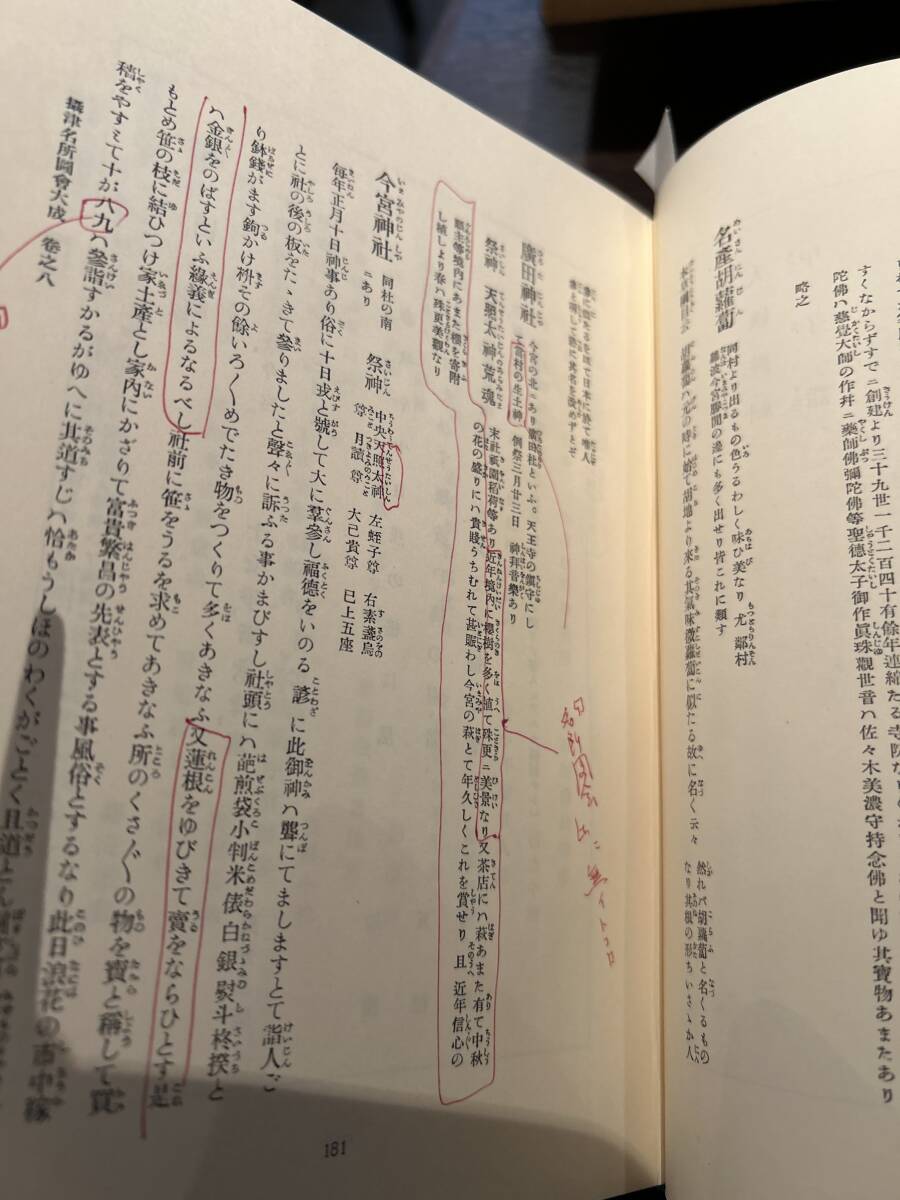 すくなからずすでニ創建より三十九世一千二百四十有餘年連綿たる寺院なり
陀佛ハ慈覺大師の作并ニ藥師佛彌陀佛等聖德太子御作眞珠觀世音ハ佐々木美濃守持念佛と聞ゆ其寶物あまたあり
略之
名産胡蘿蔔
同村より出るもの色うるわしく味ひ美なり 尤 鄰村
難波今宮勝間の邊にも多く出せり皆これに類す
胡蘿蔔ハ元の時に始て胡地より來る其氣味微蘿蔔に似たる故に名く云々
然れバ胡蘿蔔と名くるもの
なり其根の形ちいさゝか人
廣田神社
今宮の北ニあり廣田社といふ。天王寺の鎭守にし
て當村の生土神 例祭三月廿三日 神拜音樂あり
祭神 天照太神荒魂
末社祇園稻荷等あり近年境內に櫻樹を多く植て殊更ニ美景なり又茶店にハ萩あまた有て中秋
の花の盛りにハ貴賤うちむれて甚賑わし今宮の萩とて年久しくこれを賞せり且 近年信心の
願主等境內にあまた櫻を寄附
し植しより春ハ殊更美觀なり
今宮神社
同社の南
ニあり
祭神
中央天照太神 左蛭子尊 右素盞烏
尊 月讀尊 大己貴尊 已上五座
每年正月十日神事あり俗に十日戎と號して大に羣參し福德をいのる 諺に此御神ハ聾にてましますとて詣人ご
とに社の後の板をたゝきて參りましたと聲々に訴ふる事かまびすし社頭にハ葩煎袋小判米俵白銀熨斗柊揆と
り鉢錢がます鉤かけ枡その餘いろ〱めでたき物をつくりて多くあきなふ又蓮根をゆびきて賣をならひとす是
ハ金銀をのばすといふ緣義によるなるべし社前に笹をうるを求めてあきなふ所のくさ〲の物を賣と稱して買
もとめ笹の枝に結ひつけ家土產とし家內にかざりて富貴繁昌の先表とする事風俗とするなり此日浪花の市中稼
穡をやすミて十が八九ハ參詣すかるがゆへに其道すじハ恰もうしほのわくがごとく且道
攝津名所圖會大成 卷之八
181
名所図会